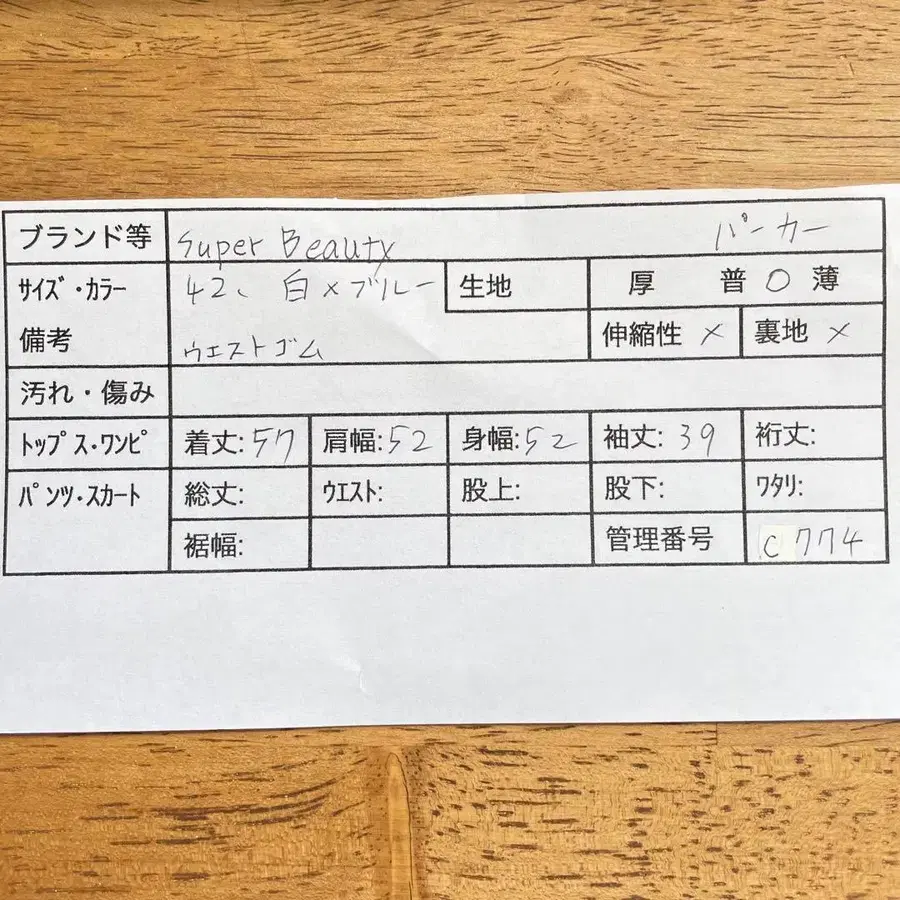 ブランド等 Super Beauty パーカー
サイズ・カラー 42、白×ブルー 生地 厚 普 ○ 薄
備考 ウエストゴム 伸縮性 × 裏地 ×
汚れ・傷み
トップス・ワンピ 着丈:57 肩幅:52 身幅:52 袖丈:39 裄丈:
パンツ・スカート 総丈: ウエスト: 股上: 股下: ワタリ:
裾幅: 管理番号 C774